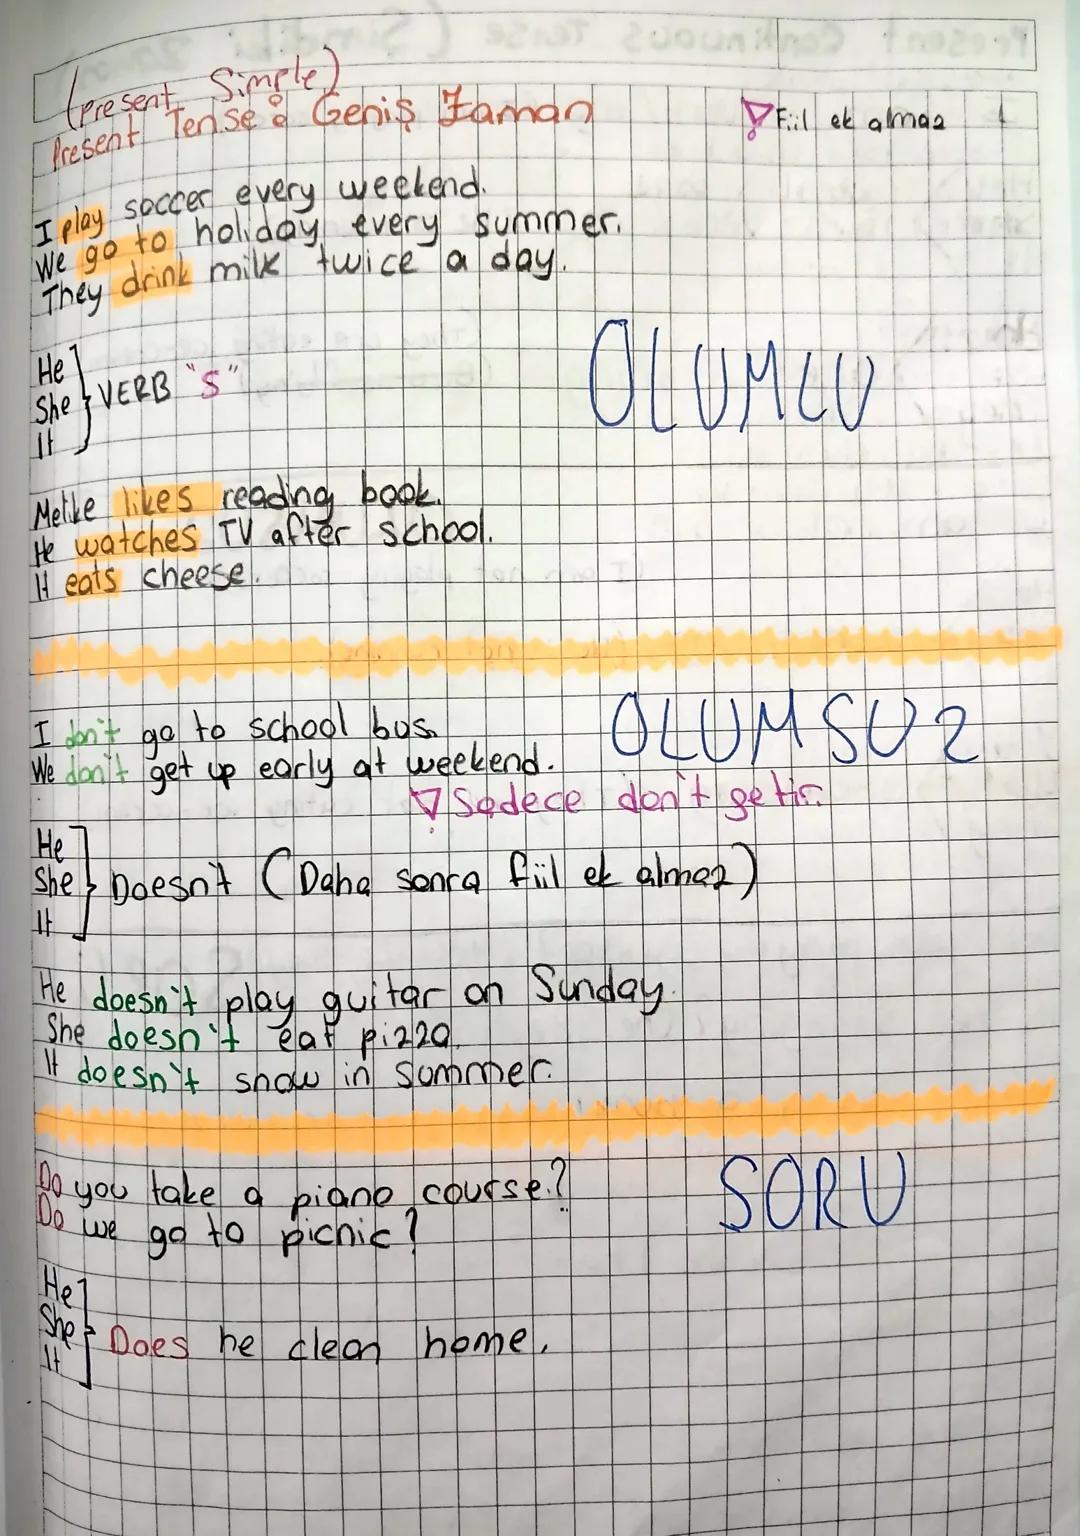 (present Simple)
Present Tense: Geniş Zaman
Fiil ek almaz
I play soccer every weekend.
We go to holiday every summer.
They drink milk twice a day.
He
She
It
VERB "s"
OLUMLU
Melike likes reading book.
He watches TV after school.
It eats cheese.
I don't go to school bus.
We don't get up early at weekend.
OLUMSUZ
Sadece don't getir.
He
She
It
Doesn't (Daha sonra fiil ek almaz)
He doesn't play guitar on Sunday.
She doesn't eat pizza.
It doesn't snow in summer.
Do you take a piano course?
Do we go to picnic?
SORU
He
She
It
Does he clean home.